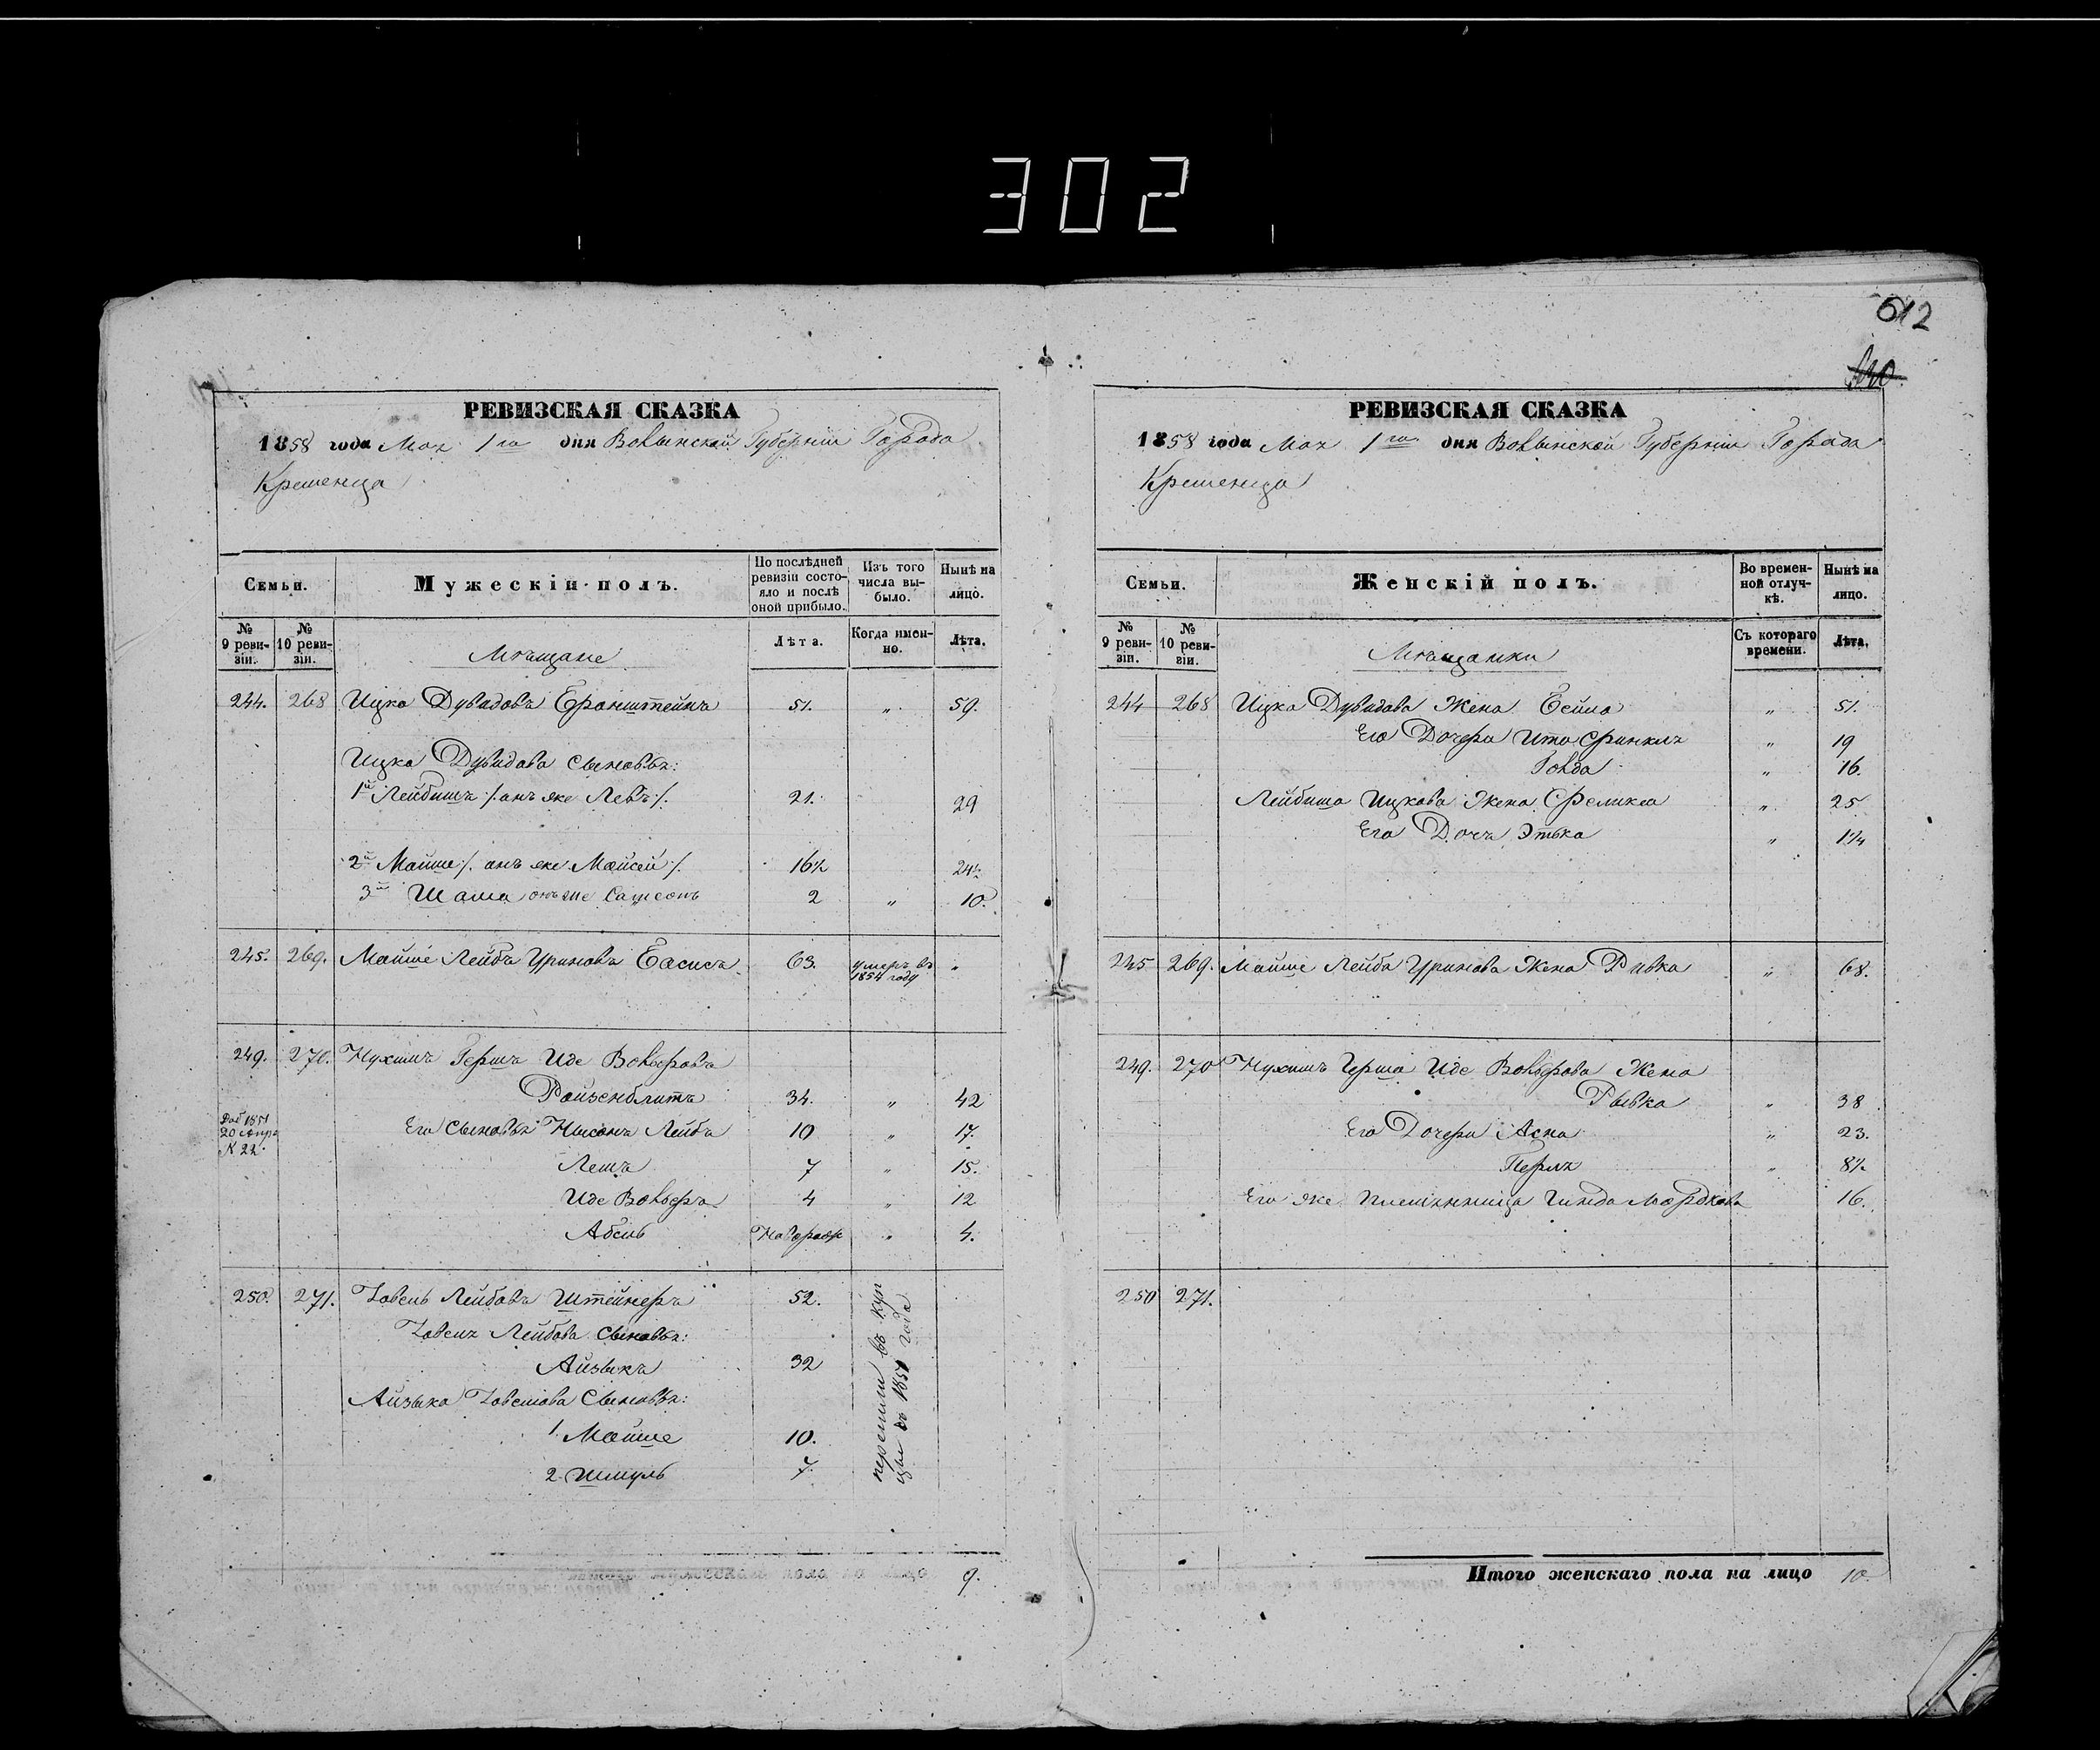 302
612
РЕВИЗСКАЯ СКАЗКА
1858 года Мая 1го дня Волынской Губернии Города
Кременца
Семьи.
Мужескій полъ.
По послѣдней ревизіи состояло и послѣ оной прибыло.
Изъ того числа выбыло.
Нынѣ на лицо.
№ 9 ревизіи.
№ 10 ревизіи.
Мѣщане
Лѣта.
Когда именно.
Лѣта.
244. 268 Ицко Дувидовъ 51. „ 59.
Ицка Дувидова сыновья:
1й Лейбишъ /: онъ же Левъ :/ 21. 29
2й Мойше /: онъ же Мойсей :/ 16½ 24½
3й Шама онъ же 2 „ 10.
245. 269. Мойше Лейба Уриновъ 63. умеръ въ 1854 году „
249. 270. Нухимъ Гершъ Иде Вольфовъ
Ройзенблитъ 34. „ 42
20 Апр
№ 22.
Его сыновья Нысонъ Лейба 10 „ 17.
7 „ 15.
Иде Вольфъ 4 „ 12
Новорож „ 4.
250. 271. Товель Лейбовъ Штейнеръ 52.
Лейбова сыновья:
Айзыкъ 32
Айзыка сыновья:
1. Мойше 10.
2. Шмуль 7.
перешли въ куп
цы въ 1851 года
мужескаго пола на лицо 9.
РЕВИЗСКАЯ СКАЗКА
1858 года Мая 1го дня Волынской Губернии Города
Кременца
Семьи.
Женскій полъ.
Во временной отлучкѣ.
Нынѣ на лицо.
№ 9 ревизіи.
№ 10 ревизіи.
Мѣщанки
Съ котораго времени.
Лѣта.
244 268 Ицка Дувидова Жена „ 51.
Его Дочери Ита „ 19
Гольда „ 16.
Лейбиша Ицкова Жена „ 25
Его Дочь Этька „ 1¼
245 269. Мойше Лейба Уринова Жена Ривка „ 68.
249. 270 Нухима Герша Иде Вольфова Жена
Рывка „ 38
Его Дочери Асна „ 23.
Перля „ 8½
Его же племянница Гинда Мордкова 16.
250 271.
Итого женскаго пола на лицо 10